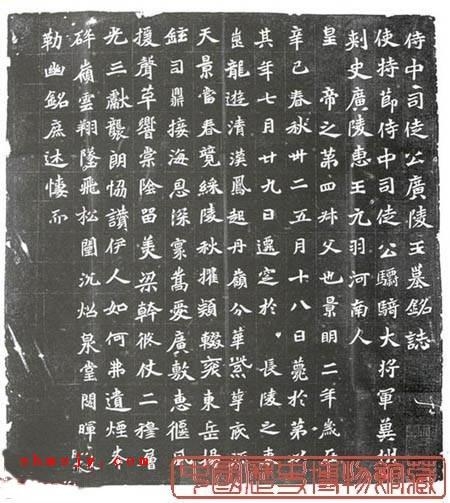 侍中司徒公廣陵王墓銘誌
使持節侍中司徒公驃騎大將軍冀州
刺史廣陵惠王元羽河南人
皇帝之第四叔父也景明二年歲在
辛巳春秋卅二五月十八日薨於第以
其年七月廿九日遷窆於長陵之東
崗龍遊清漢鳳起丹嶺分華紫萼底源
天景當春競綵陵秋擢穎輟袞東岳揚
鉉司鼎接海恩深蒙嵩愛廣敷惠偃風
援聲草響棠陰留美梁幹徂仗二穆層
光三獻襲朗協讚伊人如何弗遺煙木
碎嶺雲翔墜飛松闈沉炤泉堂閟暉
勒幽銘庶述懷而
中國歷史博物館藏